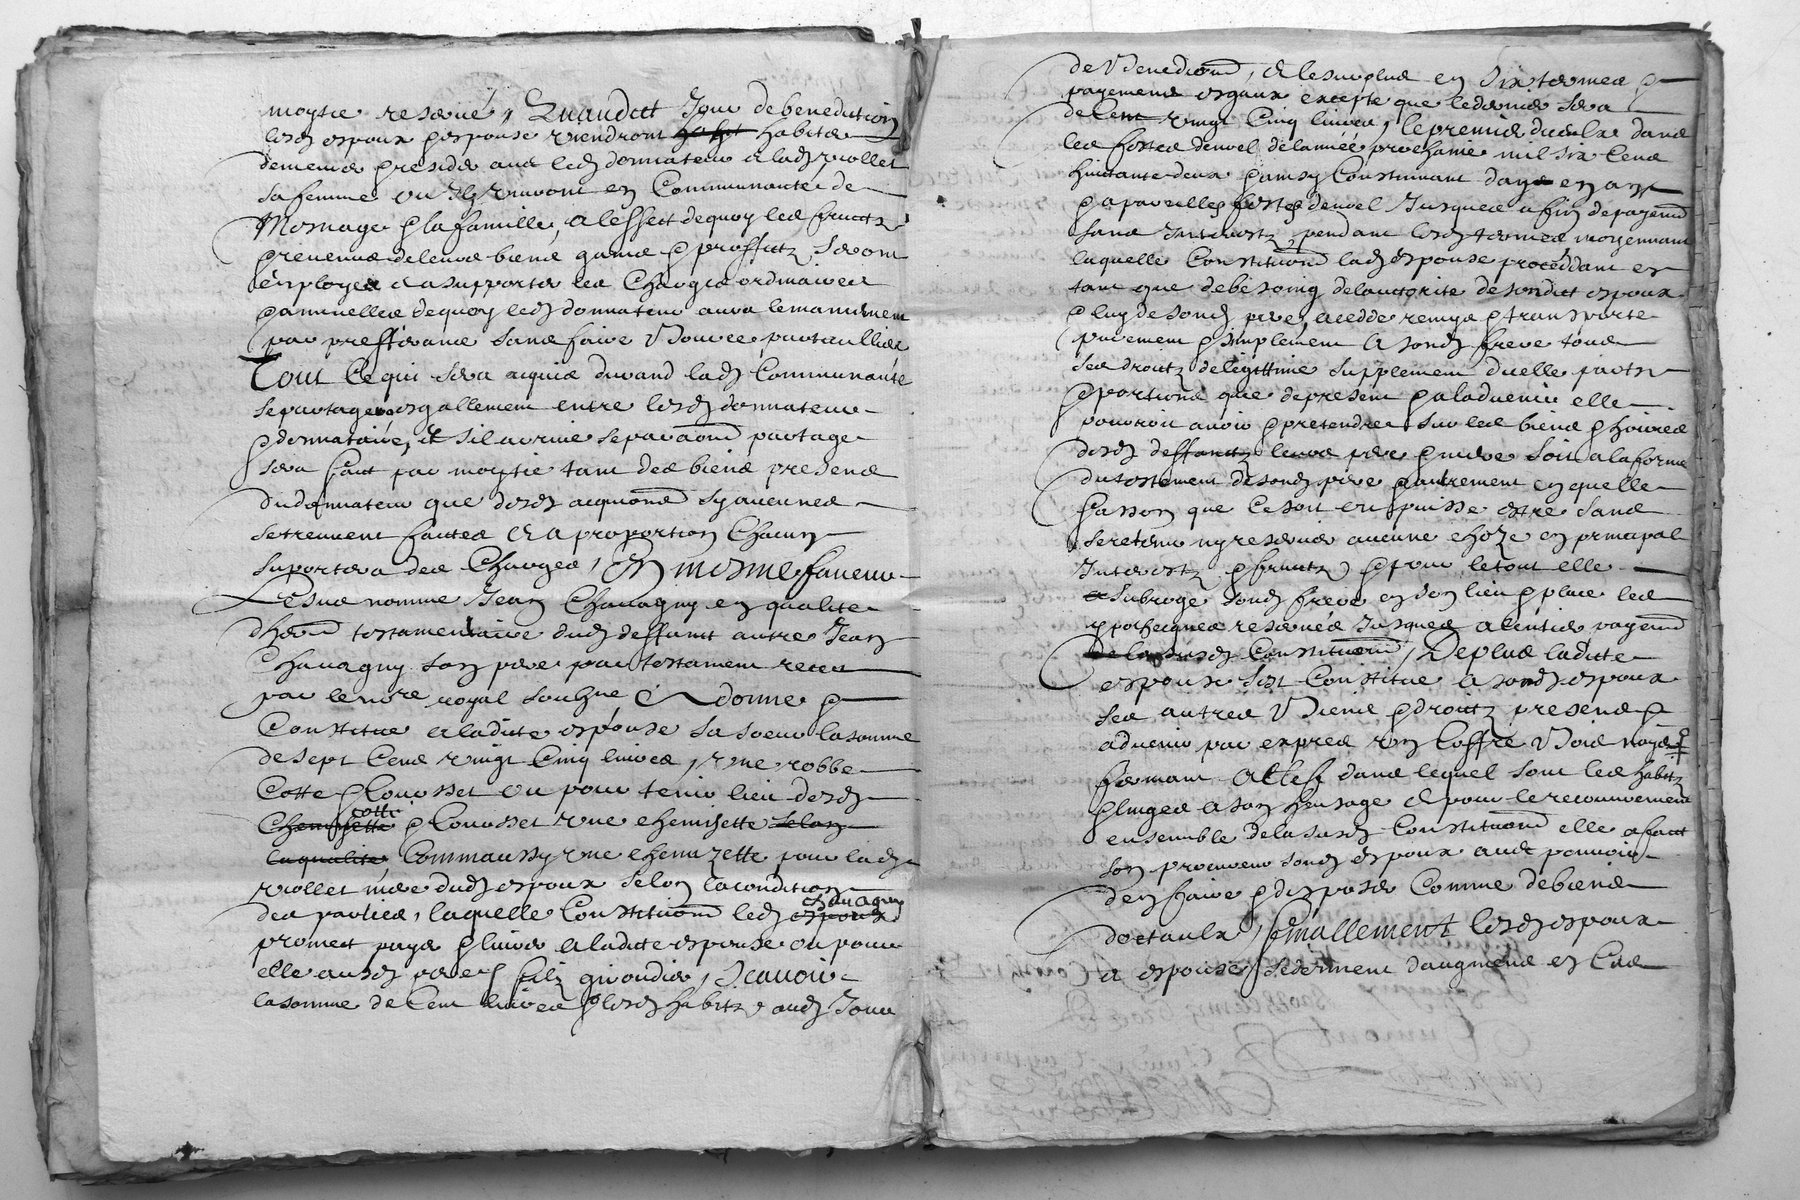 moytie reservé, Quaudict Jour de benediction
lesdz espoux & espouse viendront habiter
demeurer & resider avec ledz donnateur & ladz viollet
sa femme ou Ilz vivront en Communauté de
Mesnage & la famille, a leffect dequoy les fruictz
& revenus de leurs biens gains & proffictz seront
employes a supporter les Charges ordinaires
& annuelles dequoy ledz donnateur aura lemaniment
par prefferance sans faire Bource particulliere
Tout Cequi sera acquis durand ladz Communauté
separtagera esgallement entre lesdz donnateur
& donnataire, et sil arrive separaon partage
sera faict par moytie tant des biens presens
dudonnateur que desdz acquions sy aucunes
setreuvent faictes & a proportion Chacun
suportera des Charges, En mesme faveur
Lesus nomme Jean Chavagny en qualite
dher testamentaire dudz deffunct autre Jean
Chavagny son pere par testament receu
par le nore royal soubzne a donne &
Constitue a ladite espouse sa soeur la somme
de sept Cens vingt Cinq livres, une robbe
Cotte & Couosset ou pour tenir lieu desdz
cotte
Chemizette & Couosset une chemizette selon
la qualite Commaussy une chemizette pour ladz
viollet mere dudz espoux selon la condition
chavagny
des parties, laquelle Constitution ledz espoux
promect paye & livrer a ladite espouse ou pour
elle ausdz pere & filz girondier, Scavoir
la somme de Cent livres & lesdz habitz audz Jour
de Benedion, & le surplus en six termes &
payemens esgaux excepte que le dernier sera
de Cent vingt Cinq livres, le premier diceulx dans
les festes de noel de lannée prochaine mil six Cens
huictante deux & ainsy Continuant dans en an
& a pareilles festes de noel Jusques a fin de payemt
sans Interestz pendant lesdz termes, moyennant
laquelle Constitution ladz espouse proceddant en
tant que de besoing de lauctorite de sondict espoux
& luy de sondz pere, acedde remys & transporte
purement & simplement a sondz frere tous
ses droictz de legittime supplement dicelle partz
& portions que depresent & a ladvenir elle
pourroit avoir & pretendre sur les biens & hoiries
desdz deffunctz leurs pere & mere soit a la forme
du testement de sondz pere & autrement en quelle
fasson que Ce soit ou puisse estre sans
se retenir ny reserver aucune choze en principal
Interestz & fruictz, & pour le tout elle
a subroge sondz frere en son lieu & place les
ypotheques reservées Jusques a lentier payemt
de la susdz Constitution, De plus ladite
espouse sest Constitue a sondz espoux
ses autres Biens & droictz presens &
advenir par expres un Coffre Bois noyer
fermant a Clef dans lequel sont les habitz
& linges a son huzage & pour le recouvrement
ensemble de la susdz Constitution elle a faict
son procureur sondz espoux avec pouvoir
den faire & disposer Comme de biens
doctaulx, finallement lesdz espoux
& espouse, se donnent daugmens en Cas